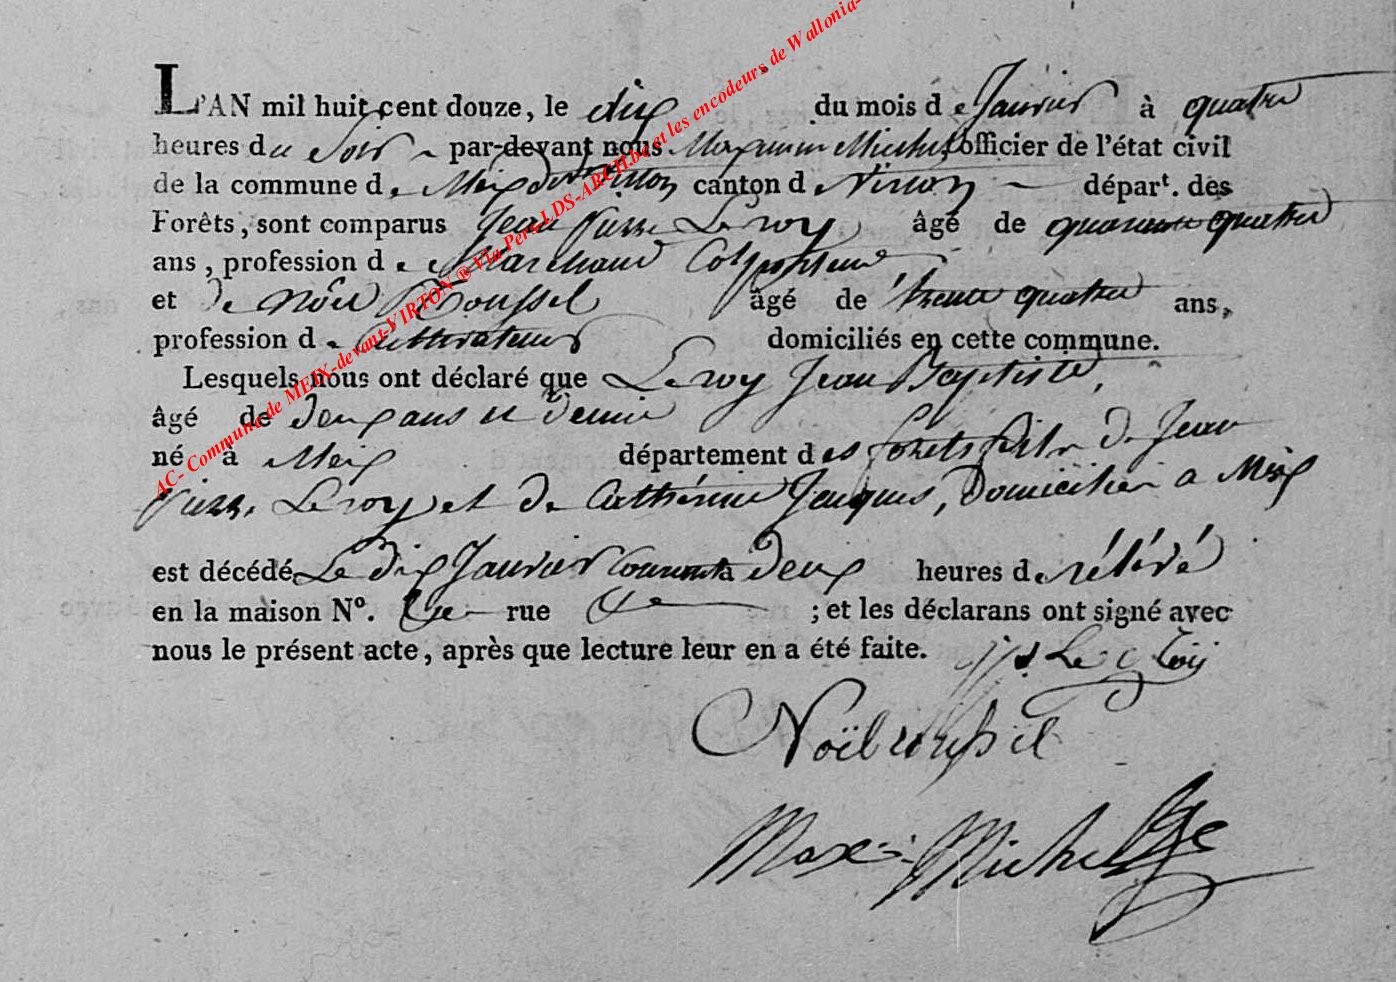 L'AN mil huit cent douze, le dix du mois de Janvier à quatre
heures du Soir par-devant nous Maximin Michel officier de l'état civil
de la commune de Meix dvt Virton canton de Virton départ. des
Forêts, sont comparus Jean Pierre Leroy âgé de quarante quatre
ans, profession de Marchand Colporteur
et de Noël Roussel âgé de trente quatre ans,
profession de Cultivateur domiciliés en cette commune.
Lesquels nous ont déclaré que Leroy Jean Baptiste,
âgé de deux ans et demie
né à Meix département des forets fils de Jean
Pierre Leroy et de Cathérine Jacques, Domicilié a Meix
est décédé Le dix Janvier Courant à deux heures de rélévé
en la maison N°. rue ; et les déclarans ont signé avec
nous le présent acte, après que lecture leur en a été faite. Le Roy
Noël
Maxi Michel
AC- Commune de MEIX-devant-VIRTON ® Via Pers-LDS-ARCH.be et les encodeurs de Wallonia-